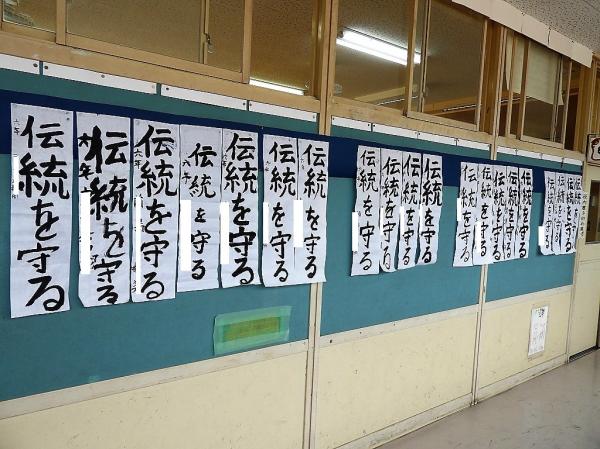 六年
伝統を守る
六年
伝統を守る
六年
伝統を守る
六年
伝統を守る
六年
伝統を守る
六年
伝統を守る
六年
伝統を守る
伝統を守る
伝統を守る
伝統を守る
伝統を守る
伝統を守る
伝統を守る
伝統を守る
伝統を守る
伝統を守る
伝統を守る
伝統を守る
伝統を守る
伝統を守る